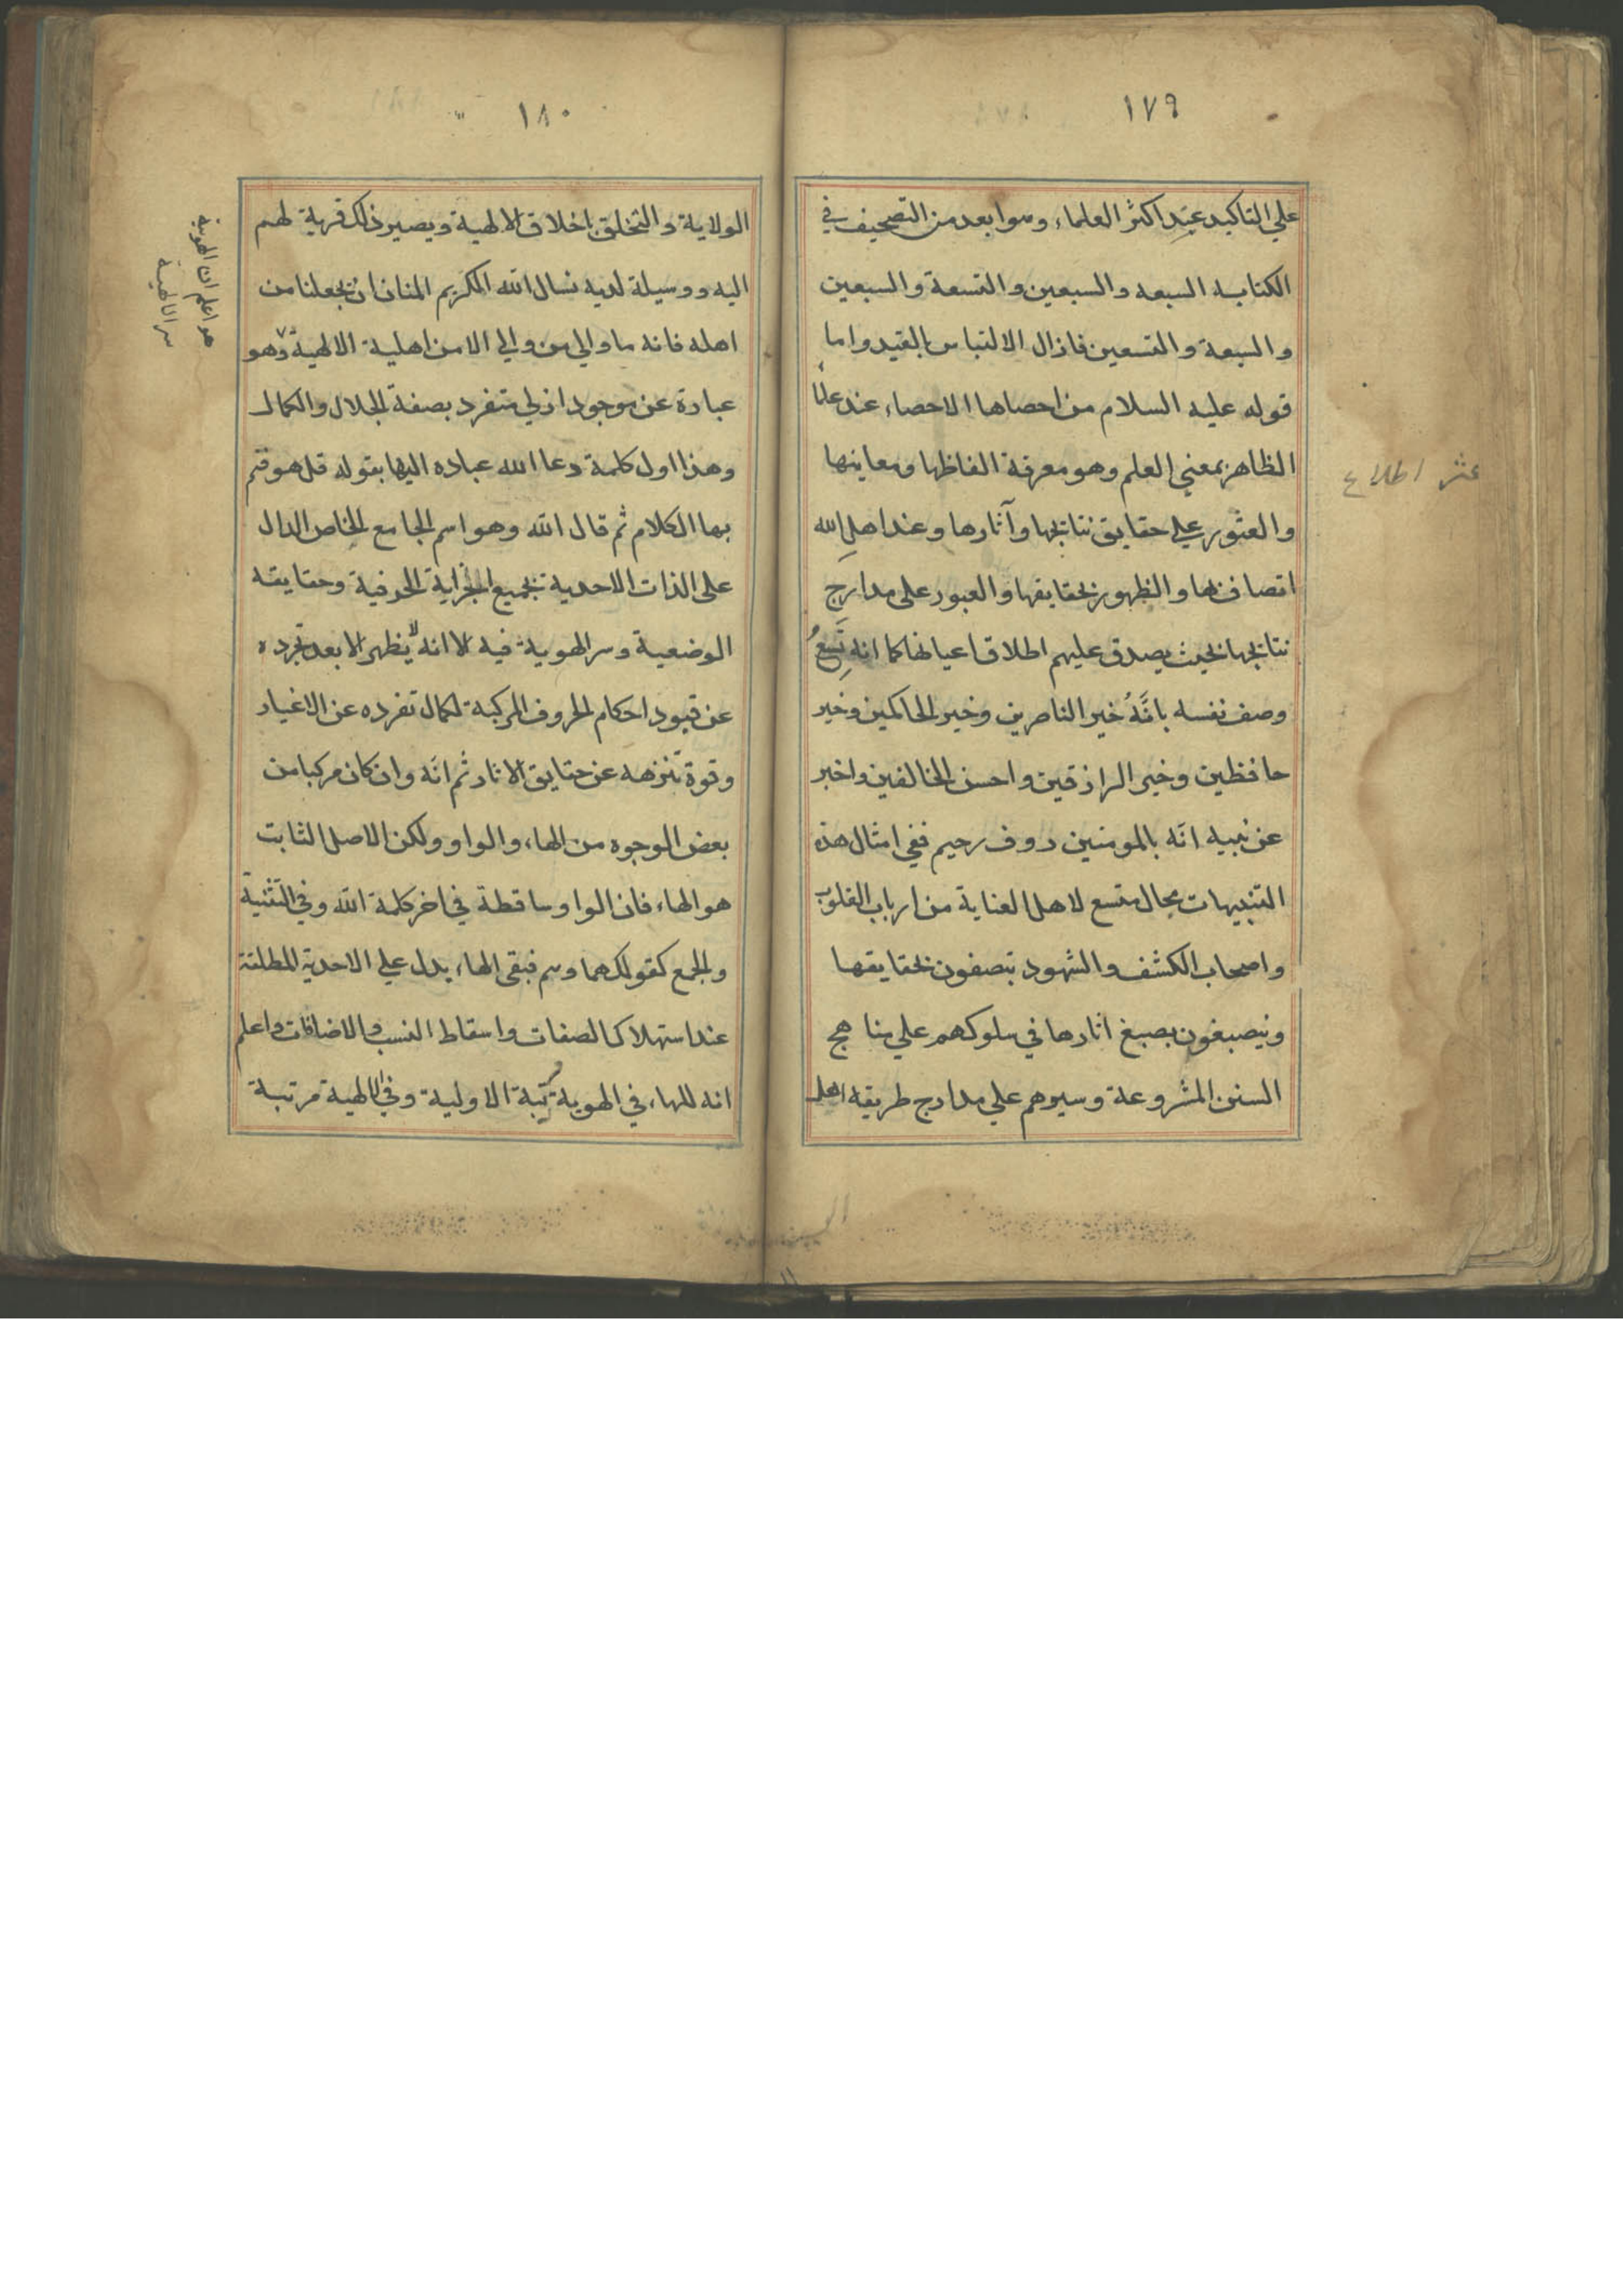 ١٧٩
على التاكيد عند اكثر العلماء وهو ابعد من التصحيف في
الكتابه السبعه والسبعين والتسعة والسبعين
والسبعة والتسعين فازال الالتباس بالقيد واما
قوله عليه السلام من احصاها الاحصاء عند علما
الظاهر بمعنى العلم وهو معرفة الفاظها ومعاينها
والعثور على حقايق نتايجها وآثارها وعند اهل الله
اتصاف بها والظهور بحقايقها والعبور على مدارج
نتايجها بحيث يصدق عليهم اطلاق اعيانها كما انه
وصف نفسه بانَّهُ خير الناصرين وخير الحاكمين وخير
حافظين وخير الرازقين واحسن الخالقين واخبر
عن نبيه انه بالمومنين روف رحيم ففي امثال هذه
التنبيهات مجال متسع لاهل العناية من ارباب القلوب
واصحاب الكشف والشهود يتصفون بحقايقها
وينصبغون بصبغ اثارها في سلوكهم على مناهج
السنن المشروعة وسيرهم على مدارج طريقه اهل
عثر اطلاع
١٨٠
الولاية والتخلق باخلاق الالهية ويصير ذلك قربة لهم
اليه ووسيلة لديه نسال الله الكريم المنان ان يجعلنا من
اهله فانه ما والي من والي الا من اهلية الالهية وهو
عبارة عن موجود ازلي متفرد بصفة الجلال والكمال
وهذا اول كلمة دعا الله عباده اليها بقوله قل هو فتم
بها الكلام ثم قال الله وهو اسم الجامع الخاص الدال
على الذات الاحدية بجميع اجزايه الحرفية وحقايقه
الوضعية وسر الهوية فيه الا انه لا يظهر الا بعد تجرده
عن قيود احكام الحروف المركبة لكمال تفرده عن الاغيار
وقوة تنزهه عن حقايق الاثار ثم انه وان كان مركبا من
بعض الوجوه من الهاء والواو ولكن الاصل الثابت
هو الهاء فان الواو ساقطة في اخر كلمة الله وفي التثنية
والجمع كقولك هما وهم فبقي الهاء يدل على الاحدية المطلقة
عند استهلاك الصفات واسقاط النسب والاضافات واعلم
انه للهاء في الهوية رتبة الاولية وفي الالهية مرتبة
هو اعلم ان الهوية
سر الالهية